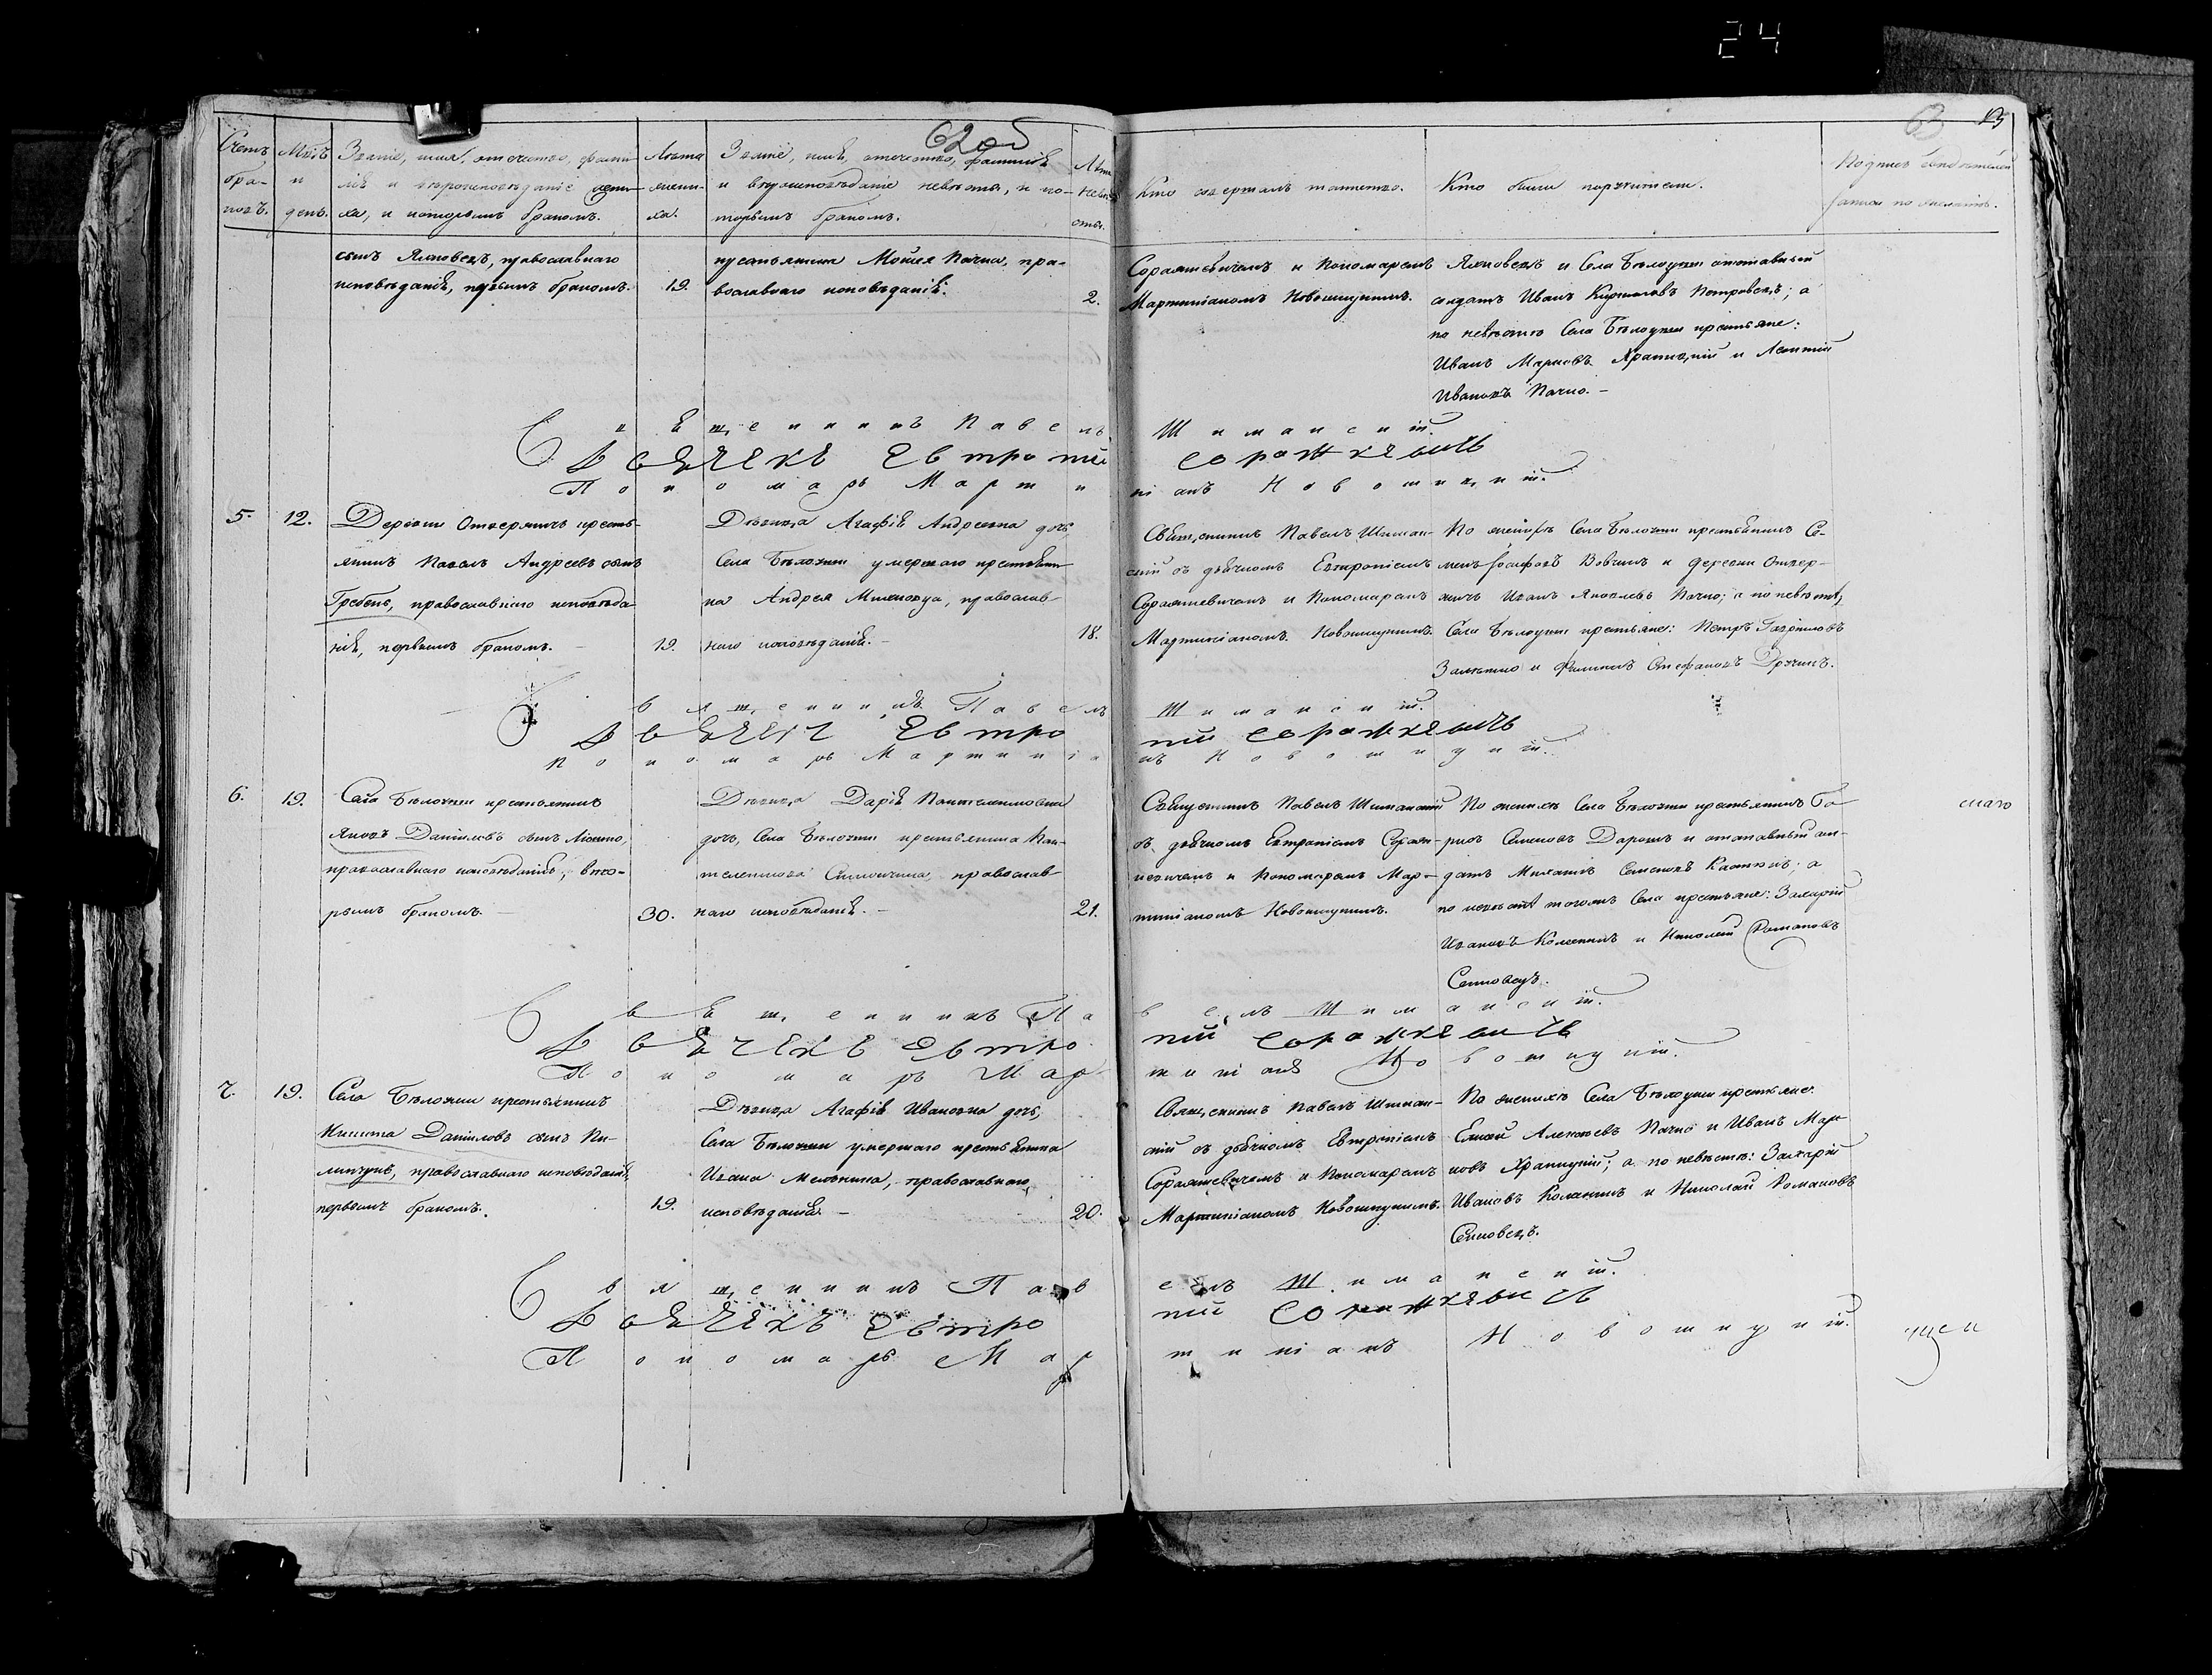 24
62об
63
Счетъ бра-ковъ.
Мѣсъ и день.
Званіе, имя, отечество, фами-
лія и вѣроисповѣданіе жени-
ха, и которымъ бракомъ.
Лѣта жени-ха.
Званіе, имя, отечество, фамилія
и вѣроисповѣданіе невѣсты, и ко-
торымъ бракомъ.
Лѣта невѣсты.
Кто совершалъ таинство.
Кто были поручители.
Подпись свидѣтелей
записи по желанію.
сынъ Яковецъ, православнаго
исповѣданія, первымъ бракомъ.
19.
крестьянина Моисея Пачка, пра-
вославнаго исповѣданія.
2.
Соражкевичемъ и Пономаремъ
Мартиніаномъ Новошицкимъ.
Яковецъ и Села Бѣлоуши отставный
солдатъ Иванъ Кириловъ Петровецъ; а
по невѣстѣ Села Бѣлоуши крестьяне:
Иванъ Марковъ Храпицкій и Леонтій
Ивановъ Пачко.
Священникъ Павелъ Шиманскій.
Дьячекъ Евтропій Соражкевичъ
Пономарь Мартиніанъ Новошицкій.
5.
12.
Деревни Отвержичъ кресть-
янинъ Павелъ Андреевъ сынъ
Гребень, православнаго исповѣда-
нія, первымъ бракомъ.
19.
Дѣвица Агафія Андреевна дочь,
Села Бѣлоуши умершаго крестьяни-
на Андрея православ-
наго исповѣданія.
18.
Священникъ Павелъ Шиман-
скій съ дьячкомъ Евтропіемъ
Соражкевичемъ и Пономаремъ
Мартиніаномъ Новошицкимъ.
По женихѣ Села Бѣлоуши крестьянинъ Се-
менъ Іосифовъ Вовчикъ и деревни Отвер-
жичъ Иванъ Яковлевъ Пачко; а по невѣстѣ,
Села Бѣлоуши крестьяне: Петръ Гавриловъ
и Филиппъ Стефановъ
Священникъ Павелъ Шиманскій.
Дьячекъ Евтропій Соражкевичъ
Пономарь Мартиніанъ Новошицкій.
6.
19.
Села Бѣлоуши крестьянинъ
Яковъ Даніиловъ сынъ
православнаго исповѣданія, вто-
рымъ бракомъ.
30.
Дѣвица Дарія Пантелеимоновна
дочь, Села Бѣлоуши крестьянина Пан-
телеимона православ-
наго исповѣданія.
21.
Священникъ Павелъ Шиманскій
съ дьячкомъ Евтропіемъ Сораж-
кевичемъ и Пономаремъ Мар-
тиніаномъ Новошицкимъ.
По женихѣ Села Бѣлоуши крестьянинъ Бо-
рисъ Семеновъ и отставный сол-
датъ Михаилъ Семеновъ а
по невѣстѣ тогожъ Села крестьяне: Захарій
Ивановъ и Николай Романовъ
Семковецъ.
скаго
Священникъ Павелъ Шиманскій.
Дьячекъ Евтропій Соражкевичъ
Пономарь Мартиніанъ Новошицкій.
7.
19.
Села Бѣлоуши крестьянинъ
Никита Даніиловъ сынъ Пи-
липчукъ, православнаго исповѣданія,
первымъ бракомъ.
19.
Дѣвица Агафія Ивановна дочь,
Села Бѣлоуши умершаго крестьянина
Ивана Мельника, православнаго
исповѣданія.
20.
Священникъ Павелъ Шиман-
скій съ дьячкомъ Евтропіемъ
Соражкевичемъ и Пономаремъ
Мартиніаномъ Новошицкимъ.
По женихѣ Села Бѣлоуши крестьяне:
Елисей Алексѣевъ Пачко и Иванъ Мар-
ковъ Храпицкій; а по невѣстѣ: Захарій
Ивановъ и Николай Романовъ
Семковецъ.
Священникъ Павелъ Шиманскій.
Дьячекъ Евтропій Соражкевичъ
Пономарь Мартиніанъ Новошицкій.